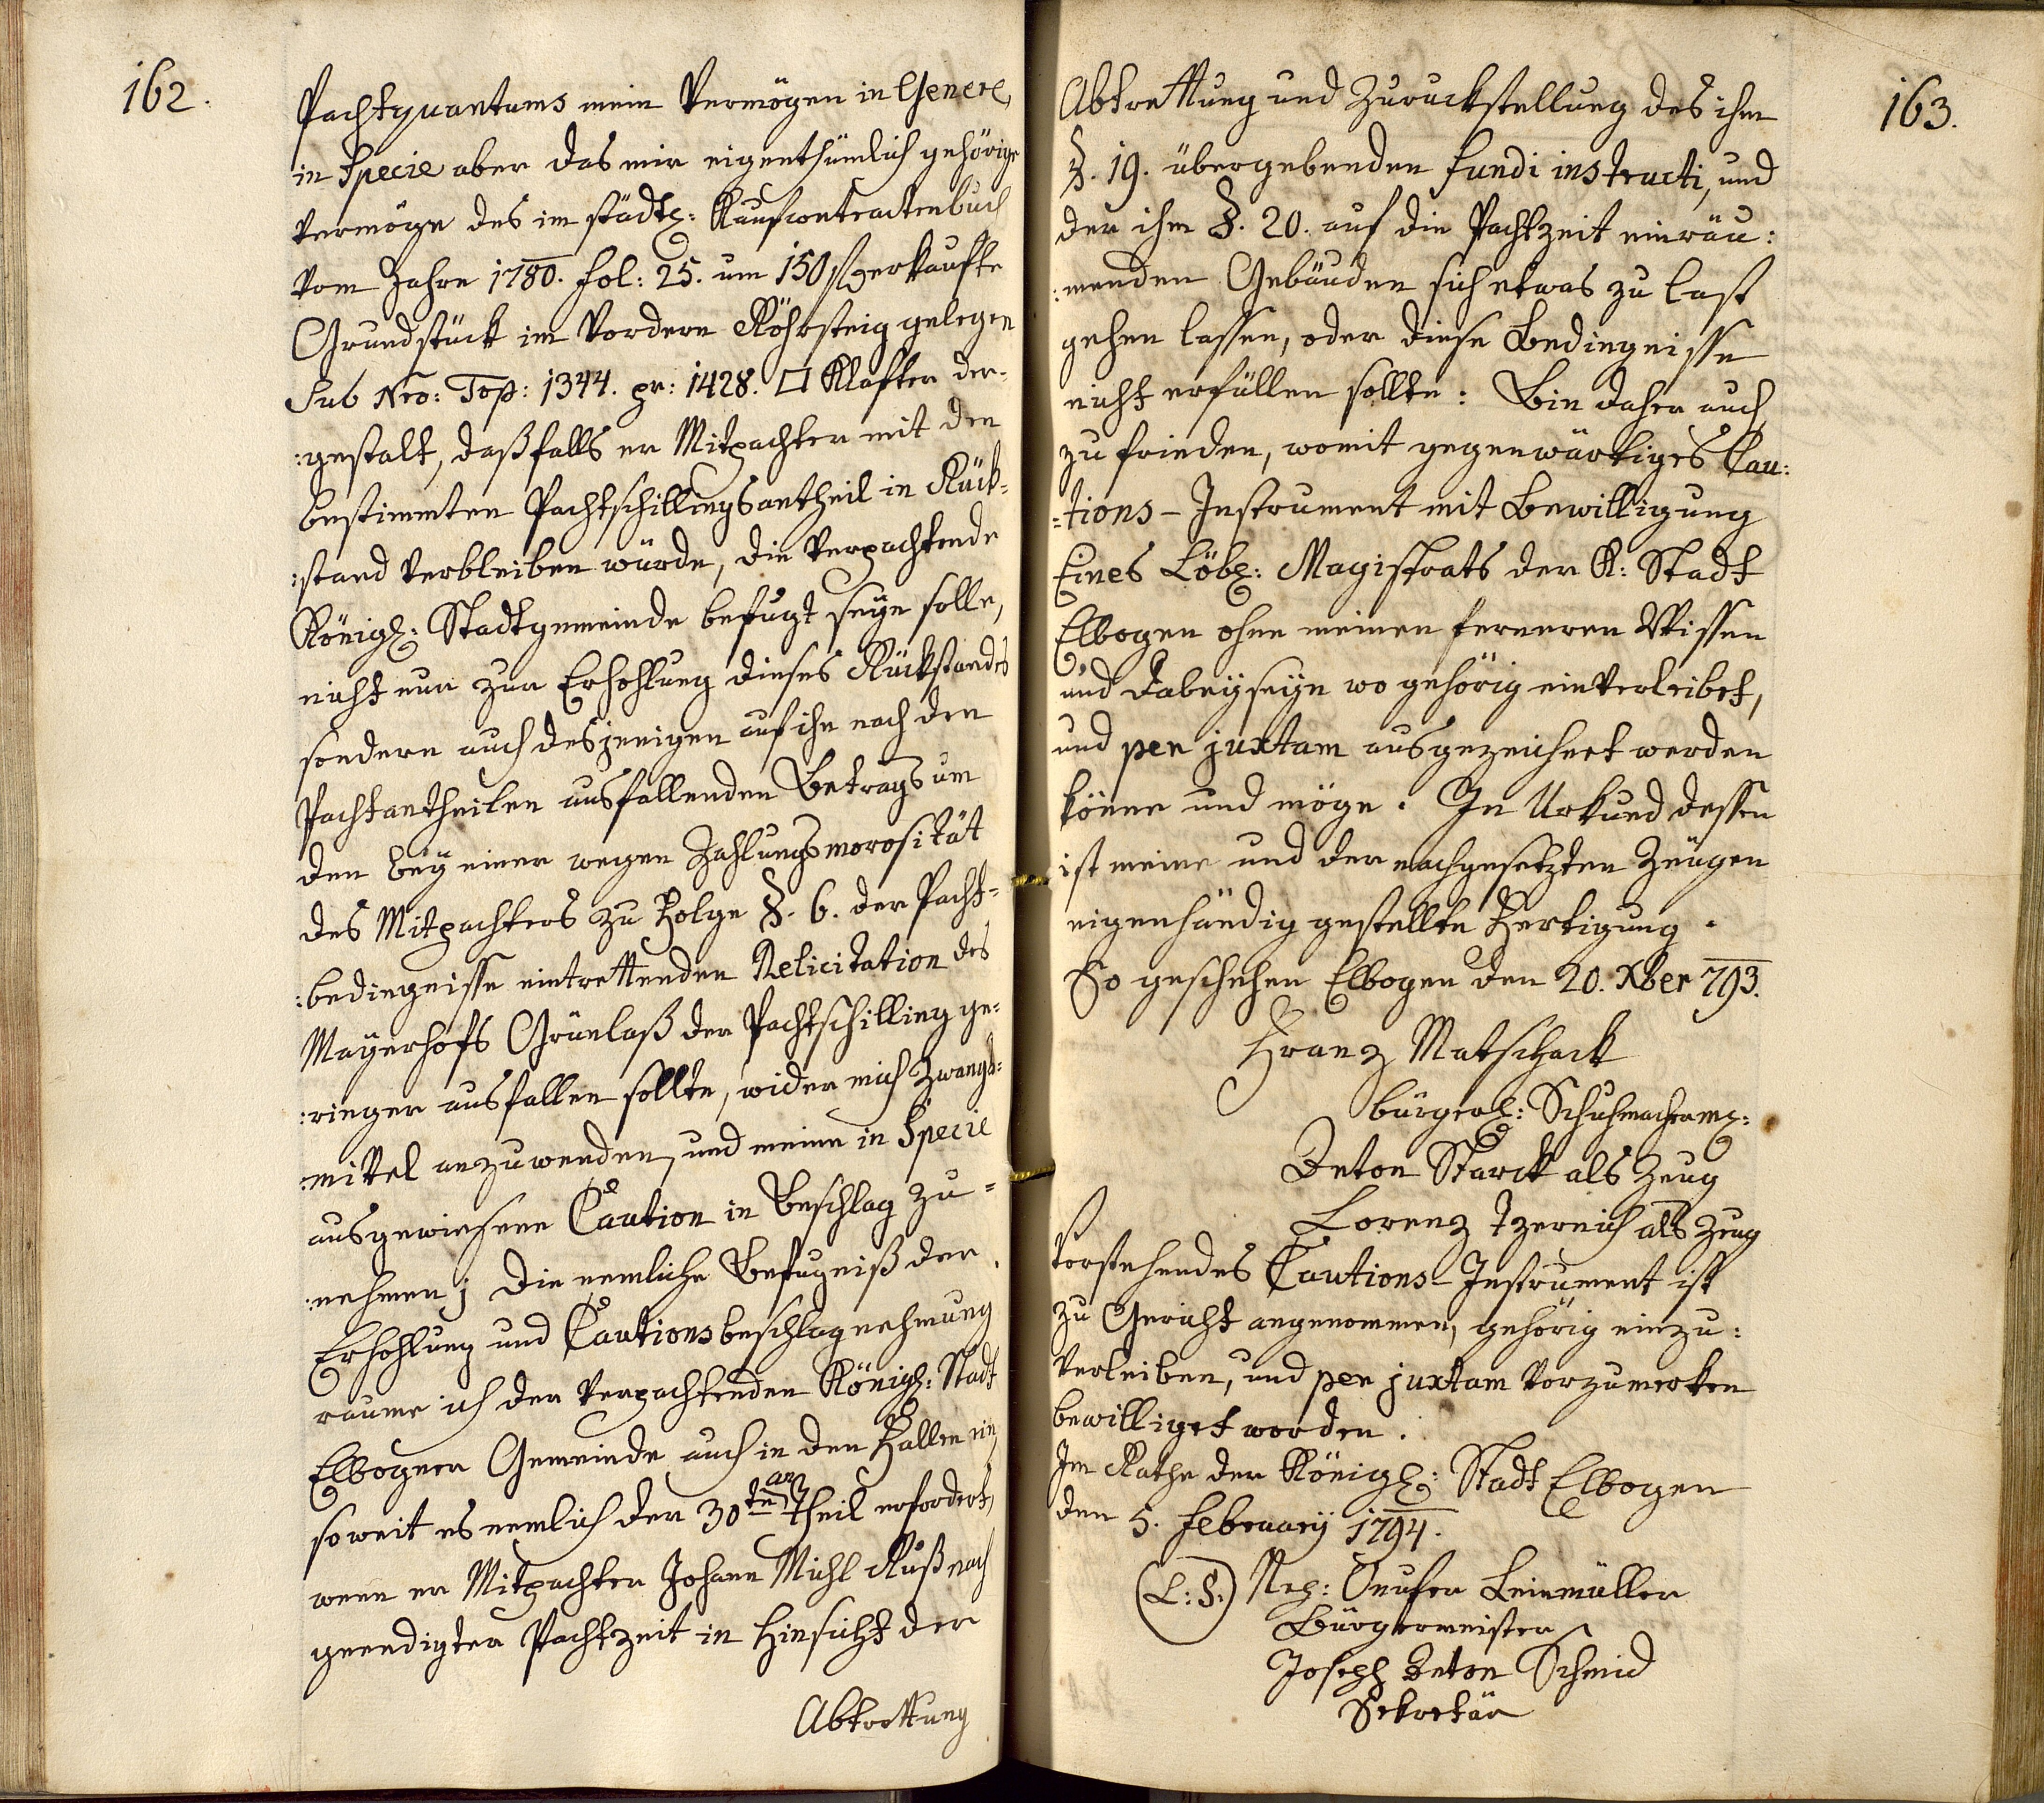 162.
Pachtquantums mein Vermögen in Genere,
in Specie aber das mir eigenthümlich gehörige
vermöge des im städtl: Kaufcontractenbuch
vom Jahre 1780. fol: 25. um 150 f erkaufte
Grundstück im Vordern Röhrsteig gelegen
Sub Nro: Top: 1344. pr: 1428. □ Klafter der-
:gestalt, daß falls er Mitpachter mit den
bestimmten Pachtschillingsantheil in Rück-
:stand verbleiben würde, die verpachtende
Königl: Stadtgemeinde befugt seyn solle,
nicht nur zur Erhohlung dieses Rückstandes
sondern auch desjenigen auf ihn nach den
Pachtantheilen ausfallenden Betrags um
den bey einer wegen Zahlungsmorosität
des Mitpachters zu Folge §. 6. der Pacht-
:bedingnisse eintrettenden Relicitation des
Mayerhofs Grünlaß der Pachtschilling ge-
:ringer ausfallen sollte, wider mich Zwangs-
:mittel anzuwenden, und meine in Specie
ausgewiesene Caution in Beschlag zu-
:nehmen; Die nemliche Befugniß der
Erhohlung und Cautionsbeschlagnehmung
raume ich der verpachtenden Königl: Stadt
Elbogner Gemeinde auch in den Fallen ein,
so weit es nemlich der 30te an Theil erfordert,
wenn er Mitpachter Johann Michl Ruß nach
geendigter Pachtzeit in Hinsicht der
Abtrettung
163.
Abtrettung und Zuruckstellung des ihm
§. 19. übergebenden fundi instructi, und
der ihm §. 20. auf die Pachtzeit einräu:
:menden Gebäuden sich etwas zu last
gehen lassen, oder diese Bedingnisse
nicht erfüllen sollte: Bin daher auch
zufrieden, womit gegenwärtiges Cau:
=tions-Instrument mit Bewilligung
Eines Löbl: Magistrats der K: Stadt
Elbogen ohne meinen ferneren Wissen
und dabeyseyn wo gehörig einverleibet,
und per juxtam ausgezeichnet werden
könne und möge. In Urkund dessen
ist meine und der nachgesetzten Zeugen
eigenhändig gestellte Fertigung.
So geschehen Elbogen den 20. Xber 793.
Franz Matschack
bürgerl: Schuhmacherm:
Anton Starck als Zeug
Lorenz Tzernich als Zeug
Vorstehendes Cautions-Instrument ist
zu Gericht angenommen, gehörig einzu:
verleiben, und per juxtam vorzumerken
bewilliget worden.
Im Rathe der Königl: Stadt Elbogen
den 5. February 1794.
(L: S:) Onufer Leinmüller
Bürgermeister
Joseph Anton Schmid
Sekretär